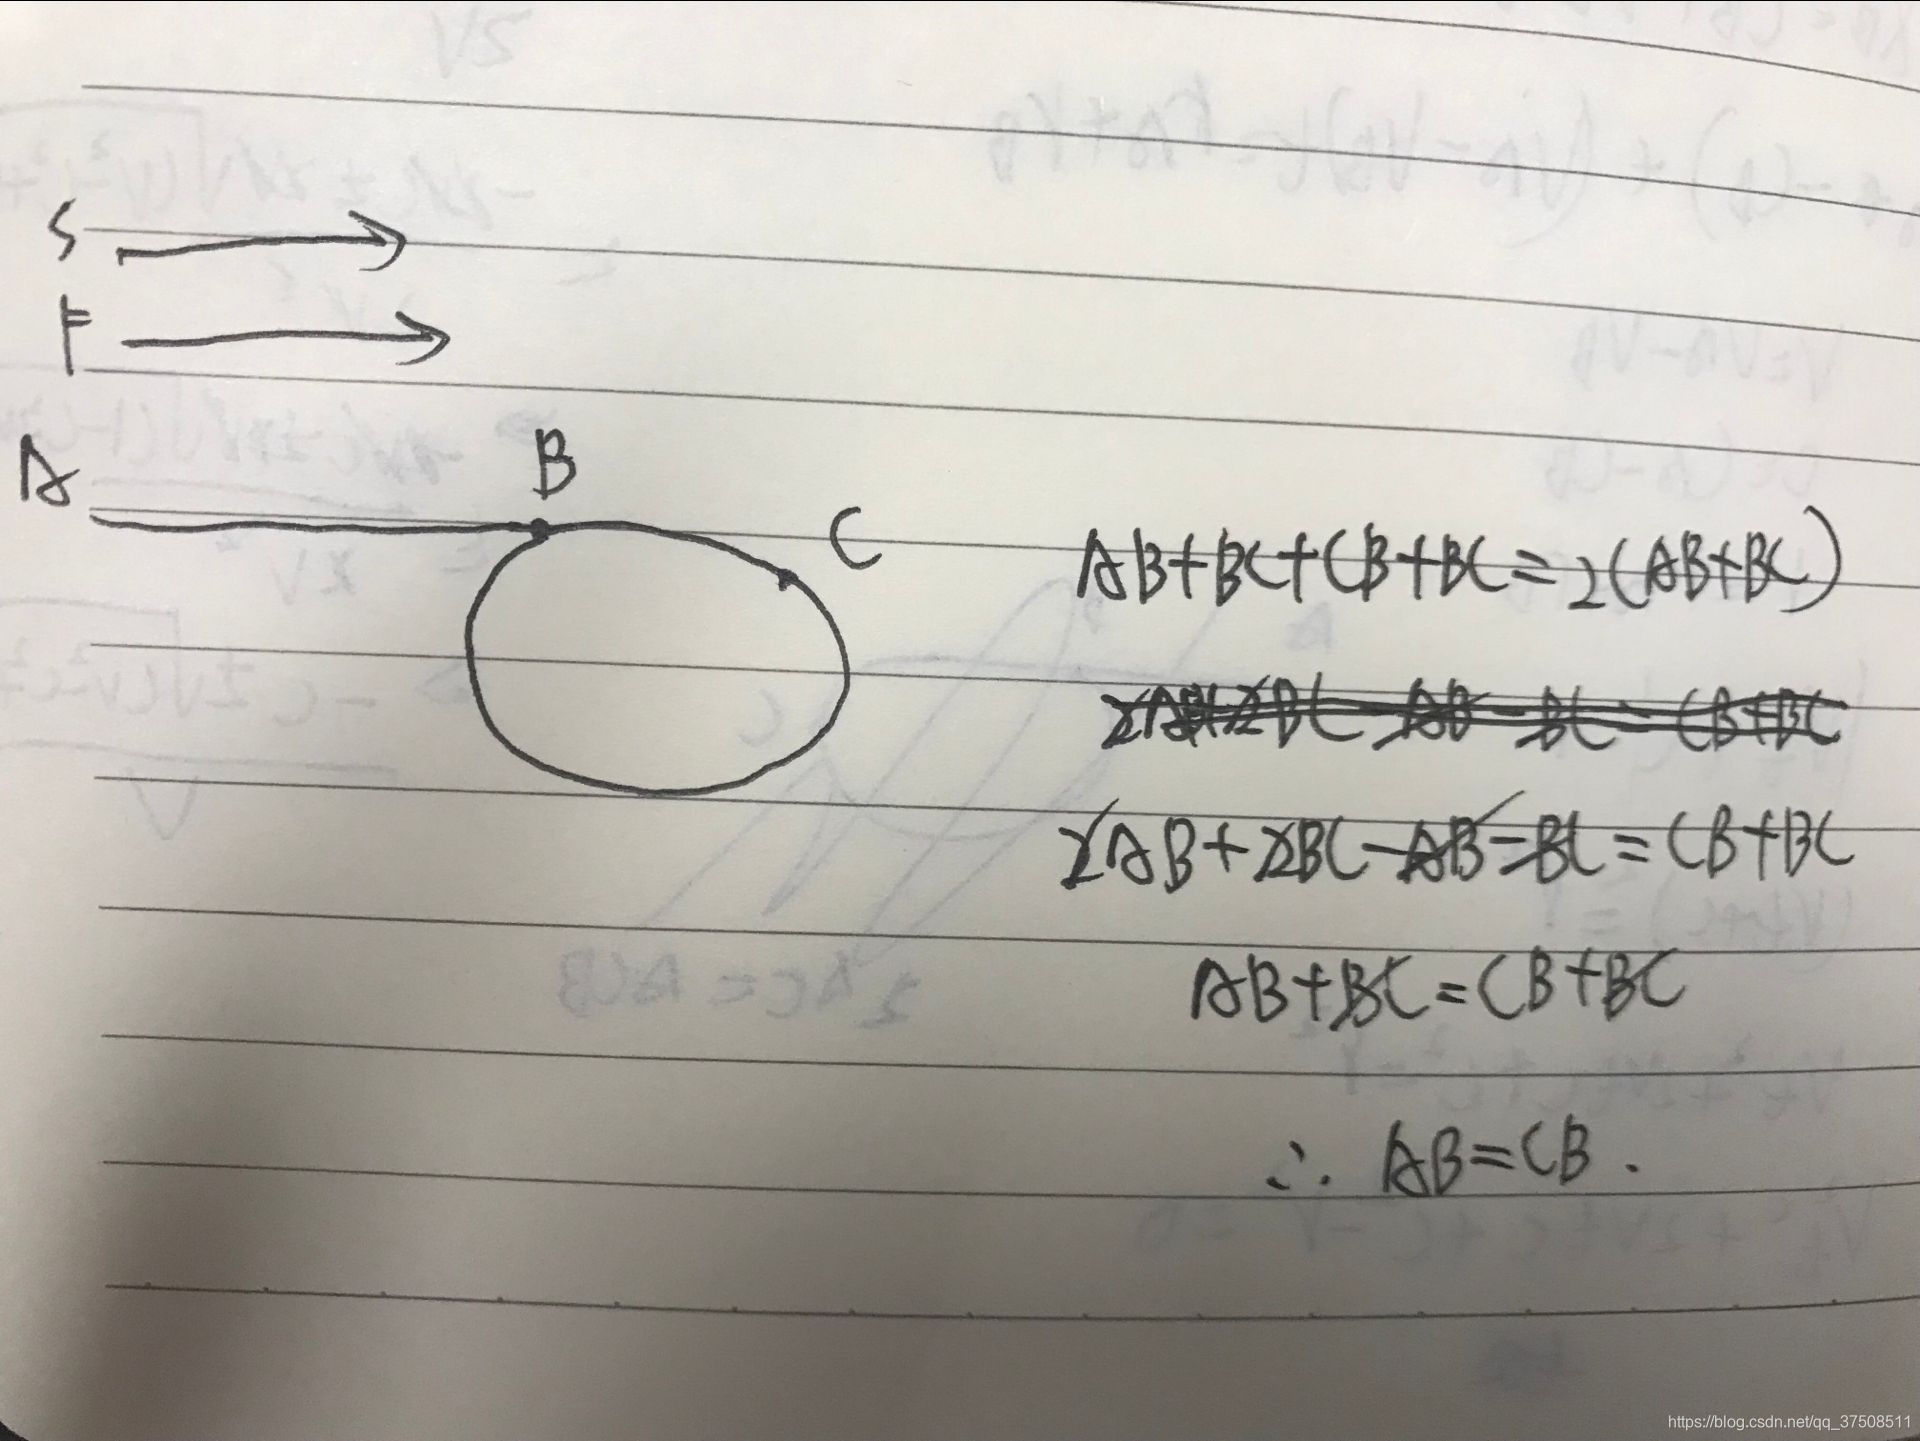 S
F
A
B
C
AB+BC+CB+BC=2(AB+BC)
2AB+2BC-AB-BC=CB+BC
2AB+2BC-AB-BC=CB+BC
AB+BC=CB+BC
∴ AB=CB.
https://blog.csdn.net/qq_37508511